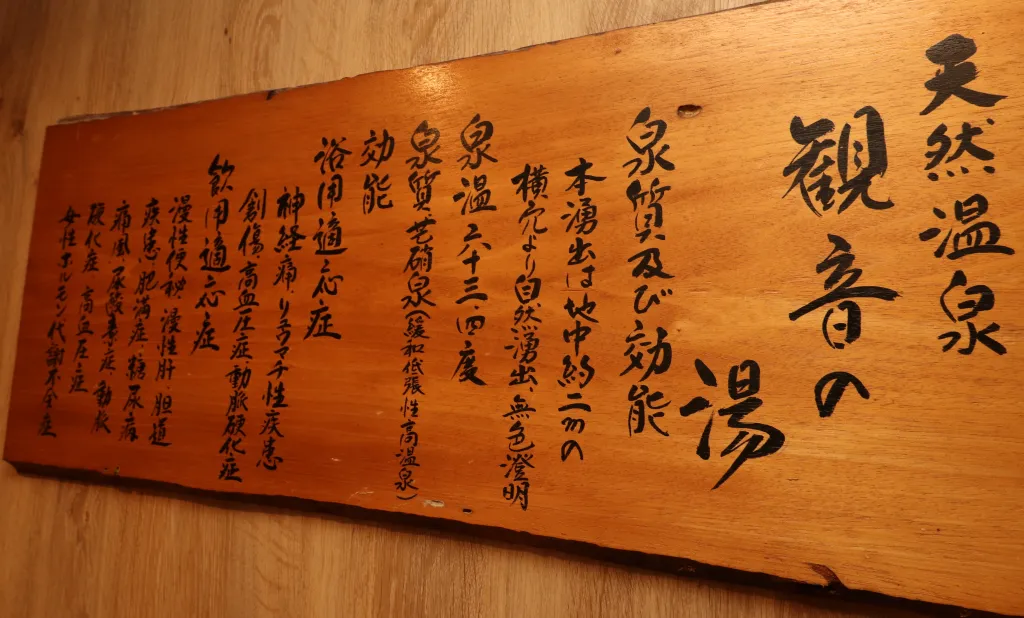 天然温泉
観音の
湯
泉質及び効能
本湧出は地中約二mの
横穴より自然湧出、無色澄明
泉温 六十三.四度
泉質 芒硝泉(緩和低張性高温泉)
効能
浴用適応症
神経痛 リュウマチ性疾患
創傷、高血圧症、動脈硬化症
飲用適応症
慢性便秘、慢性肝・胆道
疾患、肥満症、糖尿病
痛風、尿酸素症、動脈
硬化症、高血圧症
女性ホルモン代謝不全症